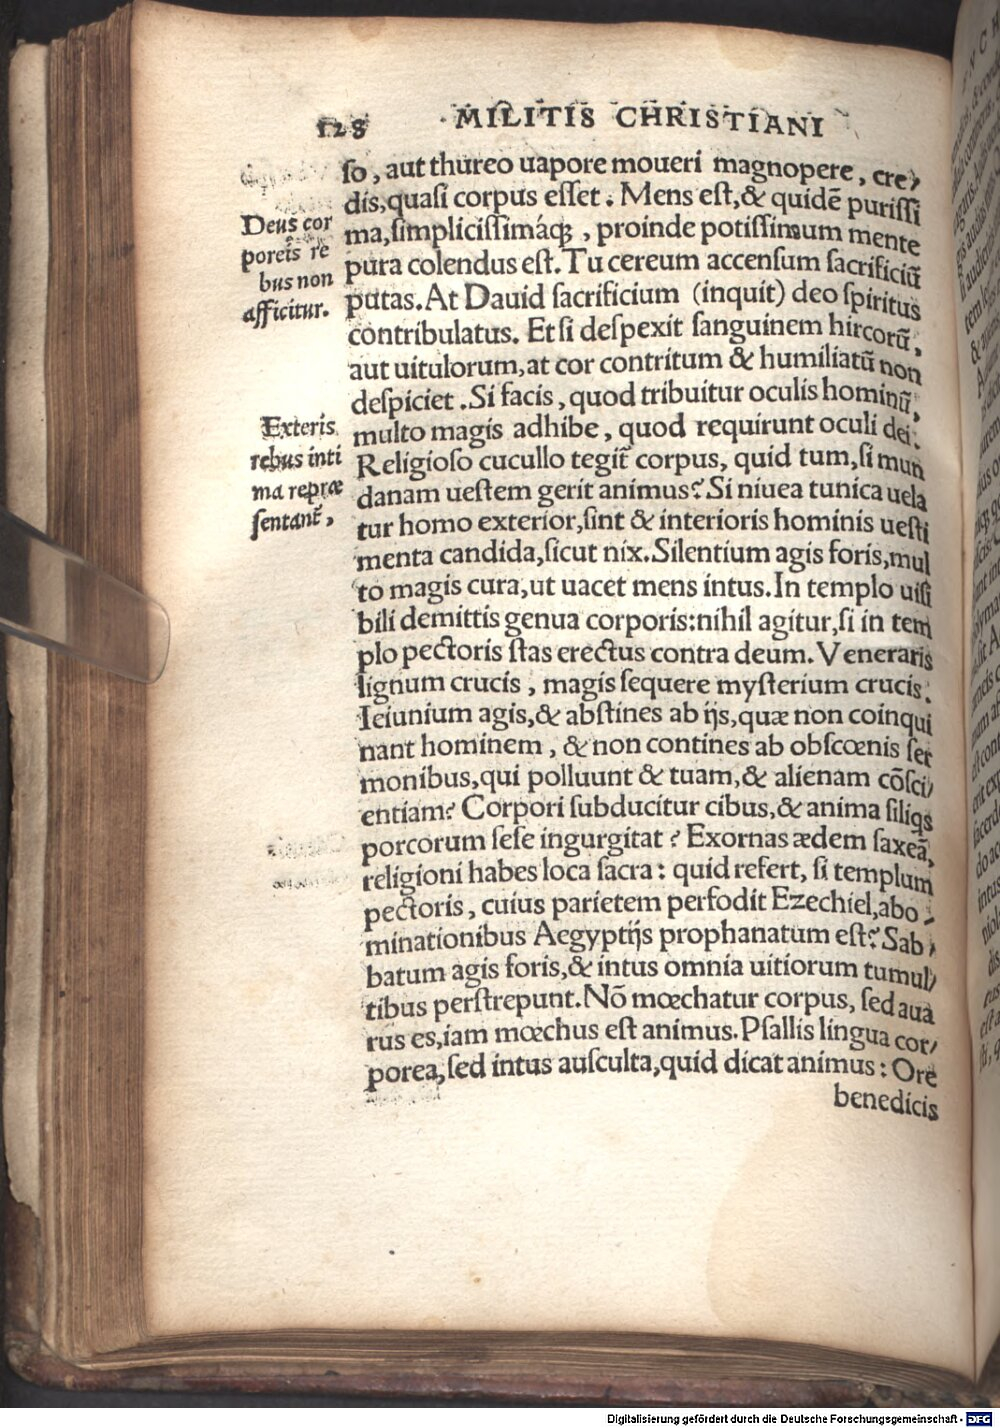 128 MILITIS CHRISTIANI
ſo, aut thureo uapore moueri magnopere, cre-
dis, quaſi corpus eſſet. Mens eſt, & quidē puriſſi
ma, ſimpliciſſimáqꝫ, proinde potiſſimum mente
pura colendus eſt. Tu cereum accenſum ſacrificiū
putas. At Dauid ſacrificium (inquit) deo ſpiritus
contribulatus. Et ſi deſpexit ſanguinem hircorū,
aut uitulorum, at cor contritum & humiliatū non
deſpiciet. Si facis, quod tribuitur oculis hominū,
multo magis adhibe, quod requirunt oculi dei.
Religioſo cucullo tegit̄ corpus, quid tum, ſi mun
danam ueſtem gerit animus? Si niuea tunica uela
tur homo exterior, ſint & interioris hominis ueſti
menta candida, ſicut nix. Silentium agis foris, mul
to magis cura, ut uacet mens intus. In templo uiſi
bili demittis genua corporis: nihil agitur, ſi in tem
plo pectoris ſtas erectus contra deum. Veneraris
lignum crucis, magis ſequere myſterium crucis.
Ieiunium agis, & abſtines ab ijs, quæ non coinqui
nant hominem, & non contines ab obſcœnis ſer
monibus, qui polluunt & tuam, & alienam cōſci-
entiam? Corpori ſubducitur cibus, & anima ſiliqs
porcorum ſeſe ingurgitat? Exornas ædem ſaxeā,
religioni habes loca ſacra: quid refert, ſi templum
pectoris, cuius parietem perfodit Ezechiel, abo-
minationibus Aegyptijs prophanatum eſt? Sab-
batum agis foris, & intus omnia uitiorum tumul-
tibus perſtrepunt. Nō mœchatur corpus, ſed aua
rus es, iam mœchus eſt animus. Pſallis lingua cor-
porea, ſed intus auſculta, quid dicat animus: Ore
benedicis
Deus cor
poreis re
bus non
afficitur.
Exteris
rebus inti
ma repræ
ſentant̄,
Digitalisierung gefördert durch die Deutsche Forschungsgemeinschaft - DFG